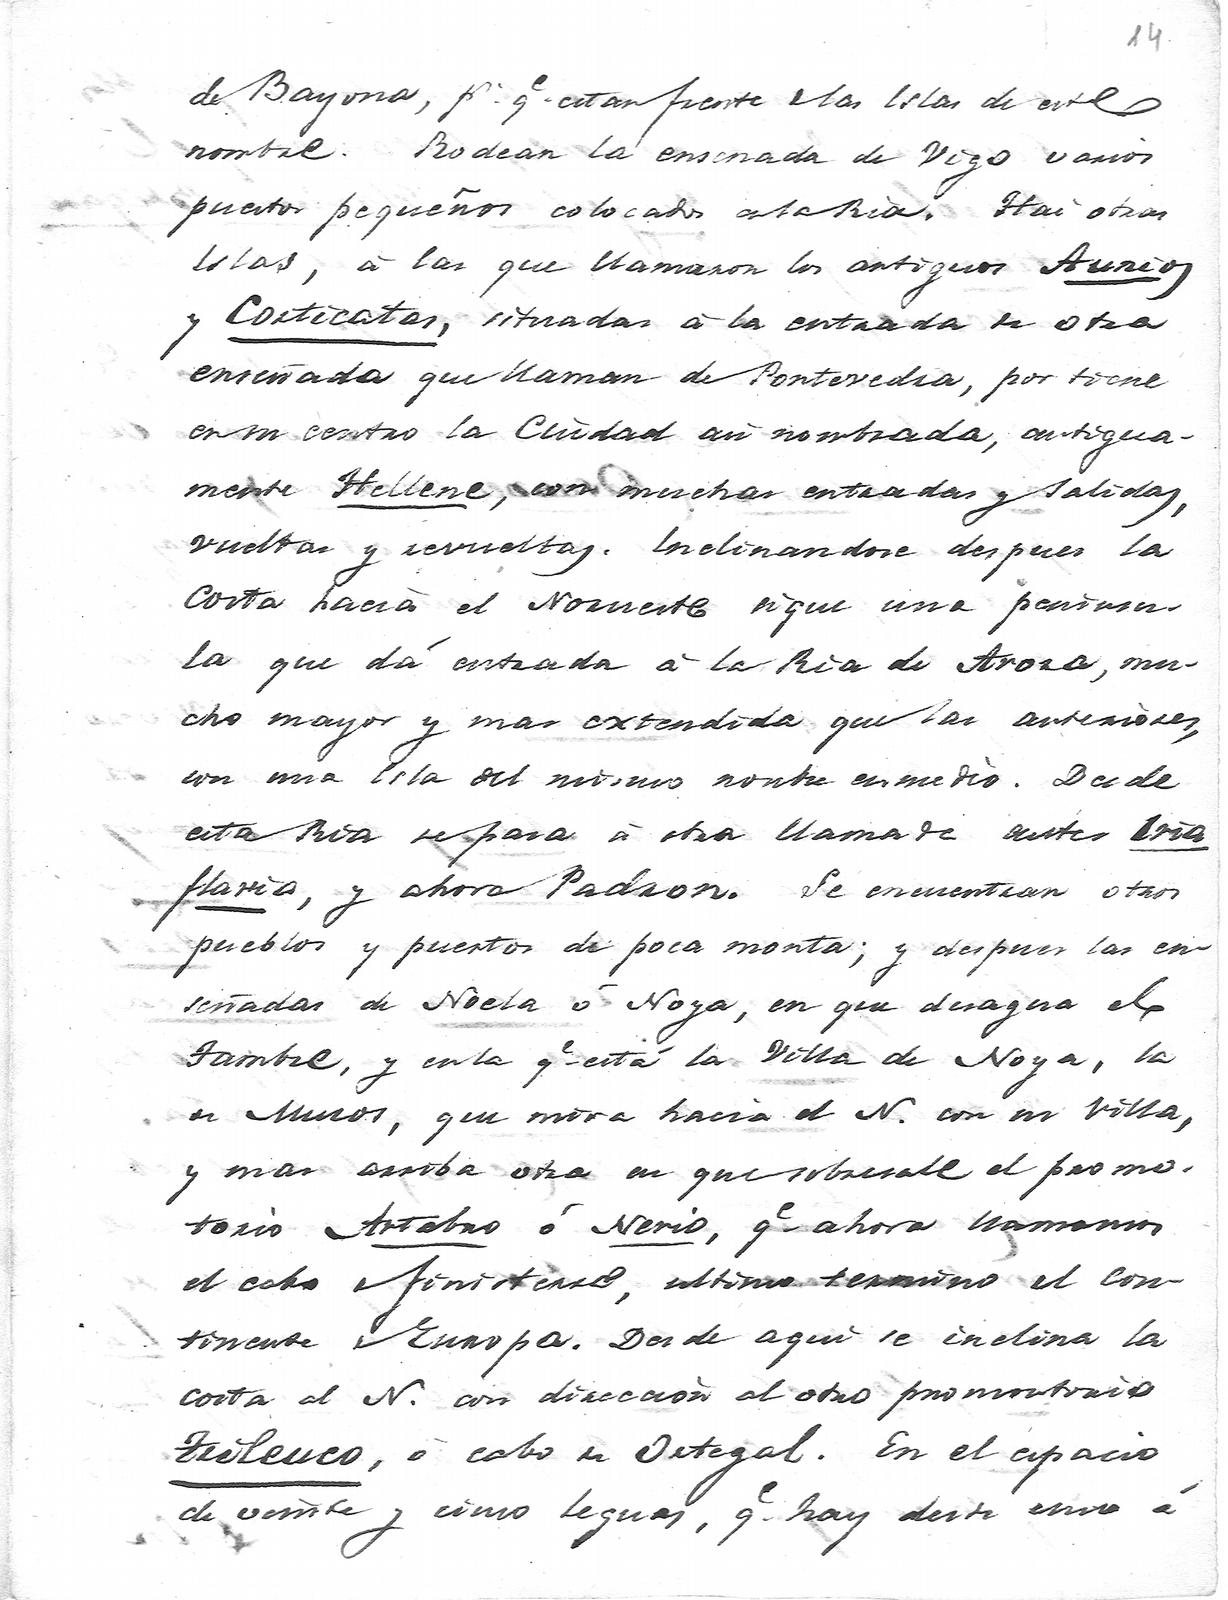 14
de Bayona, pr. qe. estan frente a las Islas de este
nombre. Rodean la ensenada de Vigo varios
puertos pequeños colocados a la Ria. Hai otras
Islas, à las que llamaron los antiguos Aunios
y Corticatas, situadas à la entrada de otra
enseñada que llaman de Pontevedra, por tiene
en su centro la Ciudad asi nombrada, antigua-
mente Hellene, con muchas entradas y salidas,
vueltas y revueltas. Inclinandose despues la
Costa hacia el Norueste sigue una peninsu-
la que dá entrada à la Ria de Arosa, mu-
cho mayor y mas extendida que las anteriores,
con una Isla del mismo nombre en medio. Desde
esta Ria se pasa à otra llamada antes Iria
flavia, y ahora Padron. Se encuentran otros
pueblos y puertos de poca monta; y despues las en-
señadas de Noela ó Noya, en que desagua el
Tambre, y en la qe. está la Villa de Noya, la
de Muros, que mira hacia el N. con su Villa,
y mas arriba otra en que sobresale el promo-
torio Artabro ó Nerio, qe. ahora llamamos
el cabo Finisterre, ultimo termino el con-
tinente Europa. Desde aqui se inclina la
costa al N. con dirección al otro promontorio
Trileuco, ó cabo de Ortegal. En el espacio
de veinte y cinco leguas, qe. hay desde uno á